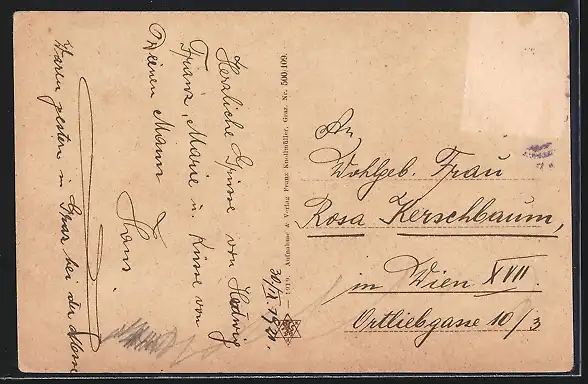 Herzliche Grüsse von Hedwig
Franz, Marie u. Küsse von
Deinem Mann
Hans.
Waren gestern in Graz bei der
30/IX. 1921.
— 1919. Aufnahme & Verlag Franz Knollmüller, Graz. Nr. 500/109.
An
Wohlgeb. Frau
Rosa Kerschbaum,
in Wien XVII.
Ortliebgasse 10/3